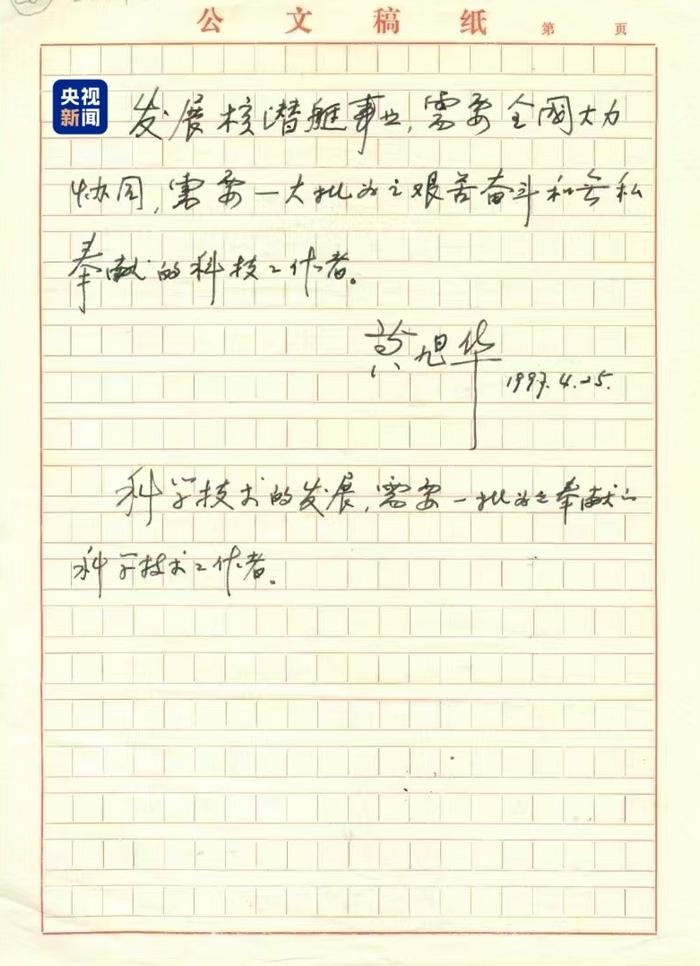 公文稿纸 第 页
央视
新闻
发展核潜艇事业,需要全国大力
协同,需要一大批为之艰苦奋斗和无私
奉献的科技工作者。
黄旭华
1997.4.25.
科学技术的发展,需要一批为之奉献的
科学技术工作者。